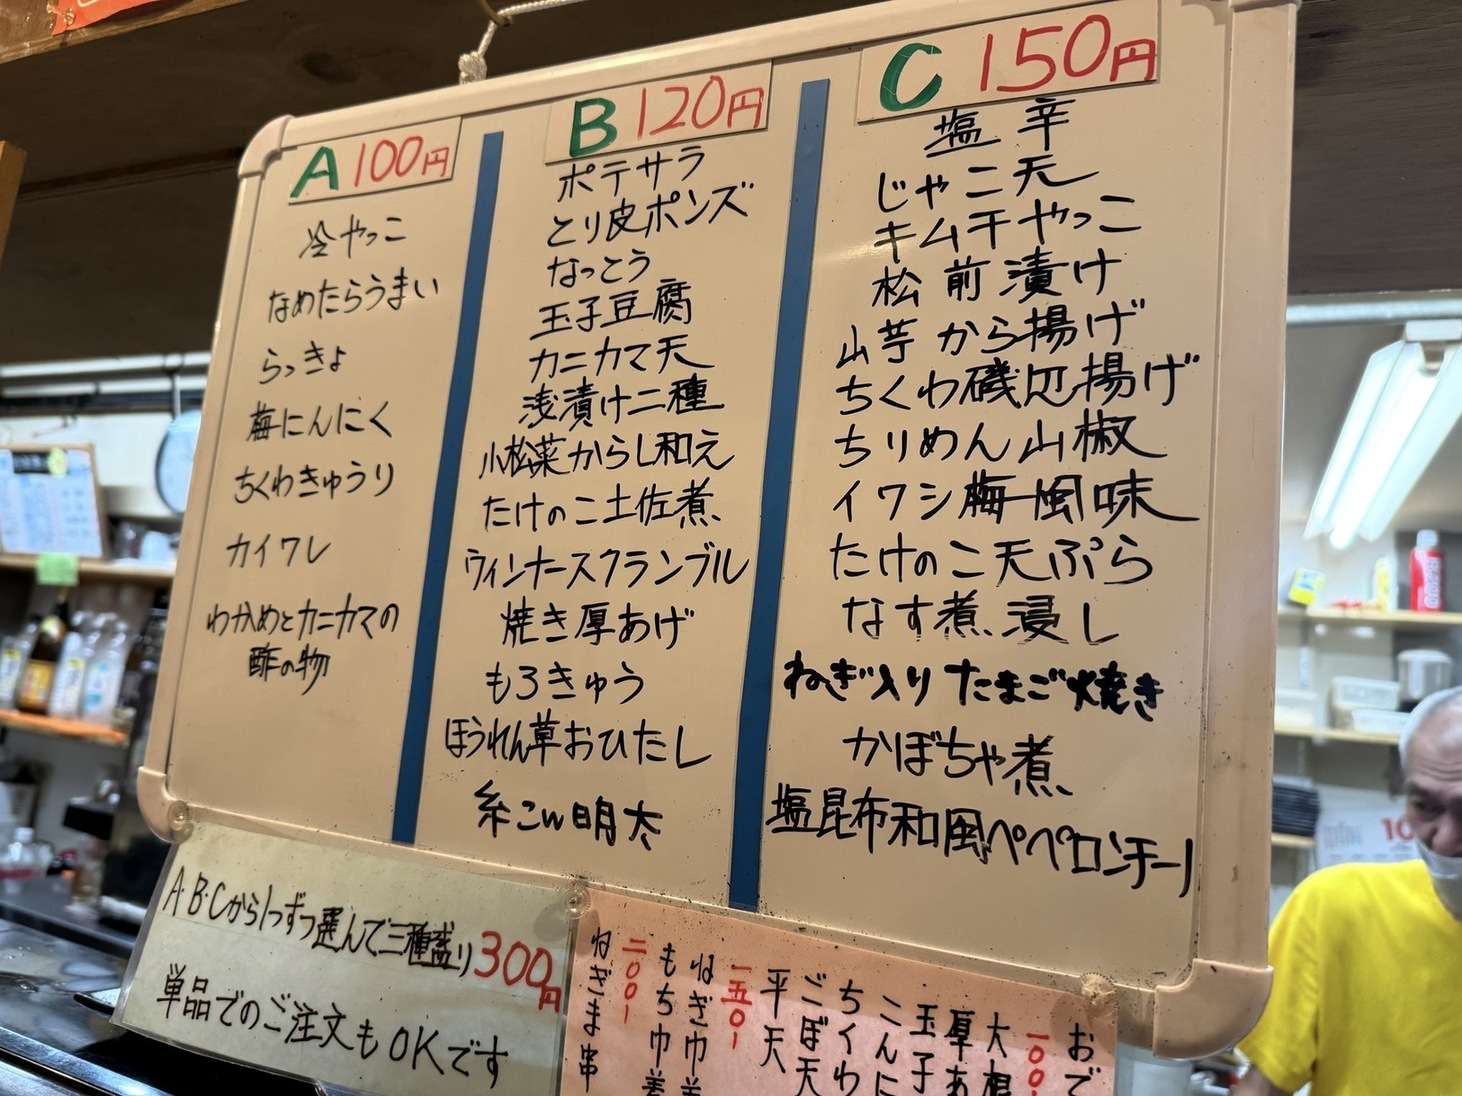 A 100円
冷やっこ
なめたらうまい
らっきょ
梅にんにく
ちくわきゅうり
カイワレ
わかめとカニカマの
酢の物
B 120円
ポテサラ
とり皮ポンズ
なっとう
玉子豆腐
カニカマ天
浅漬け二種
小松菜からし和え
たけのこ土佐煮
ウィンナースクランブル
焼き厚あげ
もろきゅう
ほうれん草おひたし
糸こん明太
C 150円
塩辛
じゃこ天
キムチやっこ
松前漬け
山芋から揚げ
ちくわ磯辺揚げ
ちりめん山椒
イワシ梅風味
たけのこ天ぷら
なす煮浸し
ねぎ入りたまご焼き
かぼちゃ煮
塩昆布和風ペペロンチーノ
A・B・Cから1つずつ選んで三種盛り300円
単品でのご注文もOKです
おで
一〇〇
大根
厚あ
玉子
こんに
ちくわ
ごぼ天
平天
一五〇
ねぎ巾
もち巾
二〇〇
ねぎま串